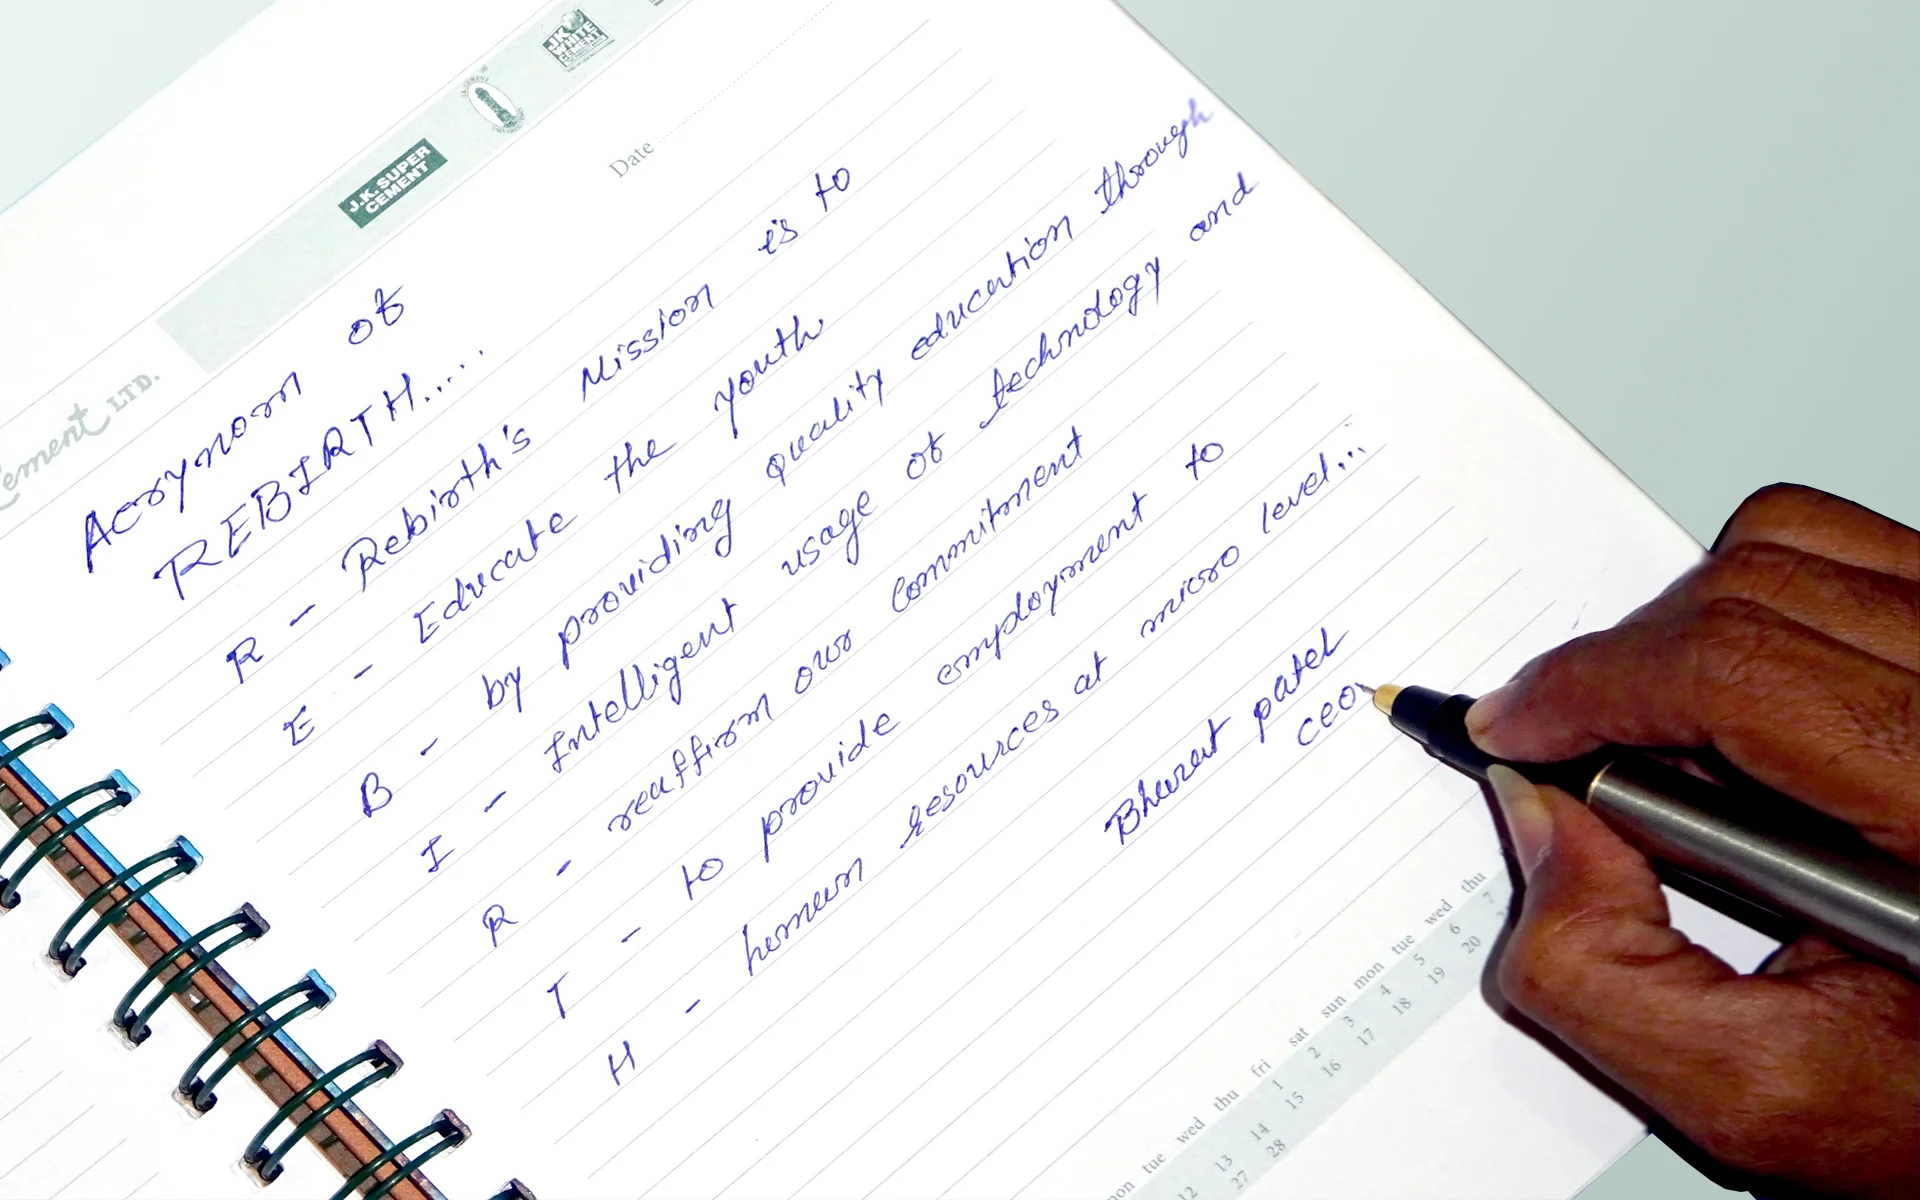 JK WHITE CEMENT
J.K. SUPER CEMENT
Cement LTD.
Date
Acrynorm of
REBIRTH....
R - Rebirth's Mission is to
E - Educate the youth
B - by providing quality education through
I - Intelligent usage of technology and
R - reaffirm our commitment
T - to provide employment to
H - human resources at micro level...
Bharat patel
CEO
mon tue wed thu fri sat sun mon tue wed thu
1 2 3 4 5 6 7
12 13 14 15 16 17 18 19 20
27 28